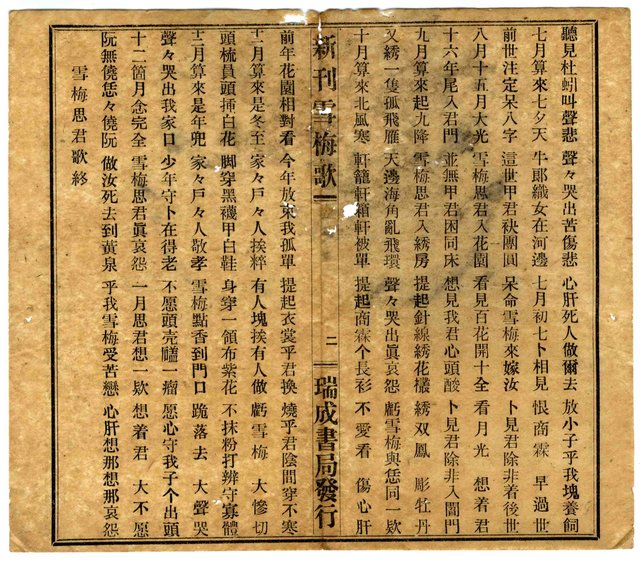 聽見杜蚓叫聲悲 聲々哭出苦傷悲 心肝死人做爾去 放小子乎我塊養飼
七月算來七夕天 牛郎織女在河邊 七月初七卜相見 恨商霖 早過世
前世注定呆八字 這世甲君袂團圓 呆命雪梅來嫁汝 卜見君除非着後世
八月十五月大光 雪梅思君入花園 看見百花開十全 看月光 想着君
十六年尾入君門 並無甲君困同床 想見我君心頭酸 卜見君除非入閻門
九月算來起九降 雪梅思君入綉房 提起針線綉花欉 綉双鳳 彫牡丹
又綉一隻孤飛雁 天邊海角亂飛環 聲々哭出眞哀怨 虧雪梅與恁同一欵
十月算來北風寒 軒籠軒箱軒被單 提起商霖个長衫 不愛看 傷心肝
新刊雪梅歌 二 瑞成書局發行
前年花園相對看 今年放來我孤單 提起衣裳乎君換 燒乎君陰間穿不寒
十一月算來是冬至 家々戶々人挨粹 有人塊挨有人做 虧雪梅 大慘切
頭梳員頭揷白花 脚穿黑襪甲白鞋 身穿一領布紫花 不抹粉打辨守寡體
十二月算來是年兜 家々戶々人敬孝 雪梅點香到門口 跪落去 大聲哭
聲々哭出我家口 少年守卜在得老 不愿頭壳磕一瘤 愿心守我子个出頭
十二箇月念完全 雪梅思君眞哀怨 一月思君想一欵 想着君 大不愿
阮無僥恁々僥阮 做汝死去到黃泉 乎我雪梅受苦戀 心肝想那想那哀怨
雪梅思君歌終